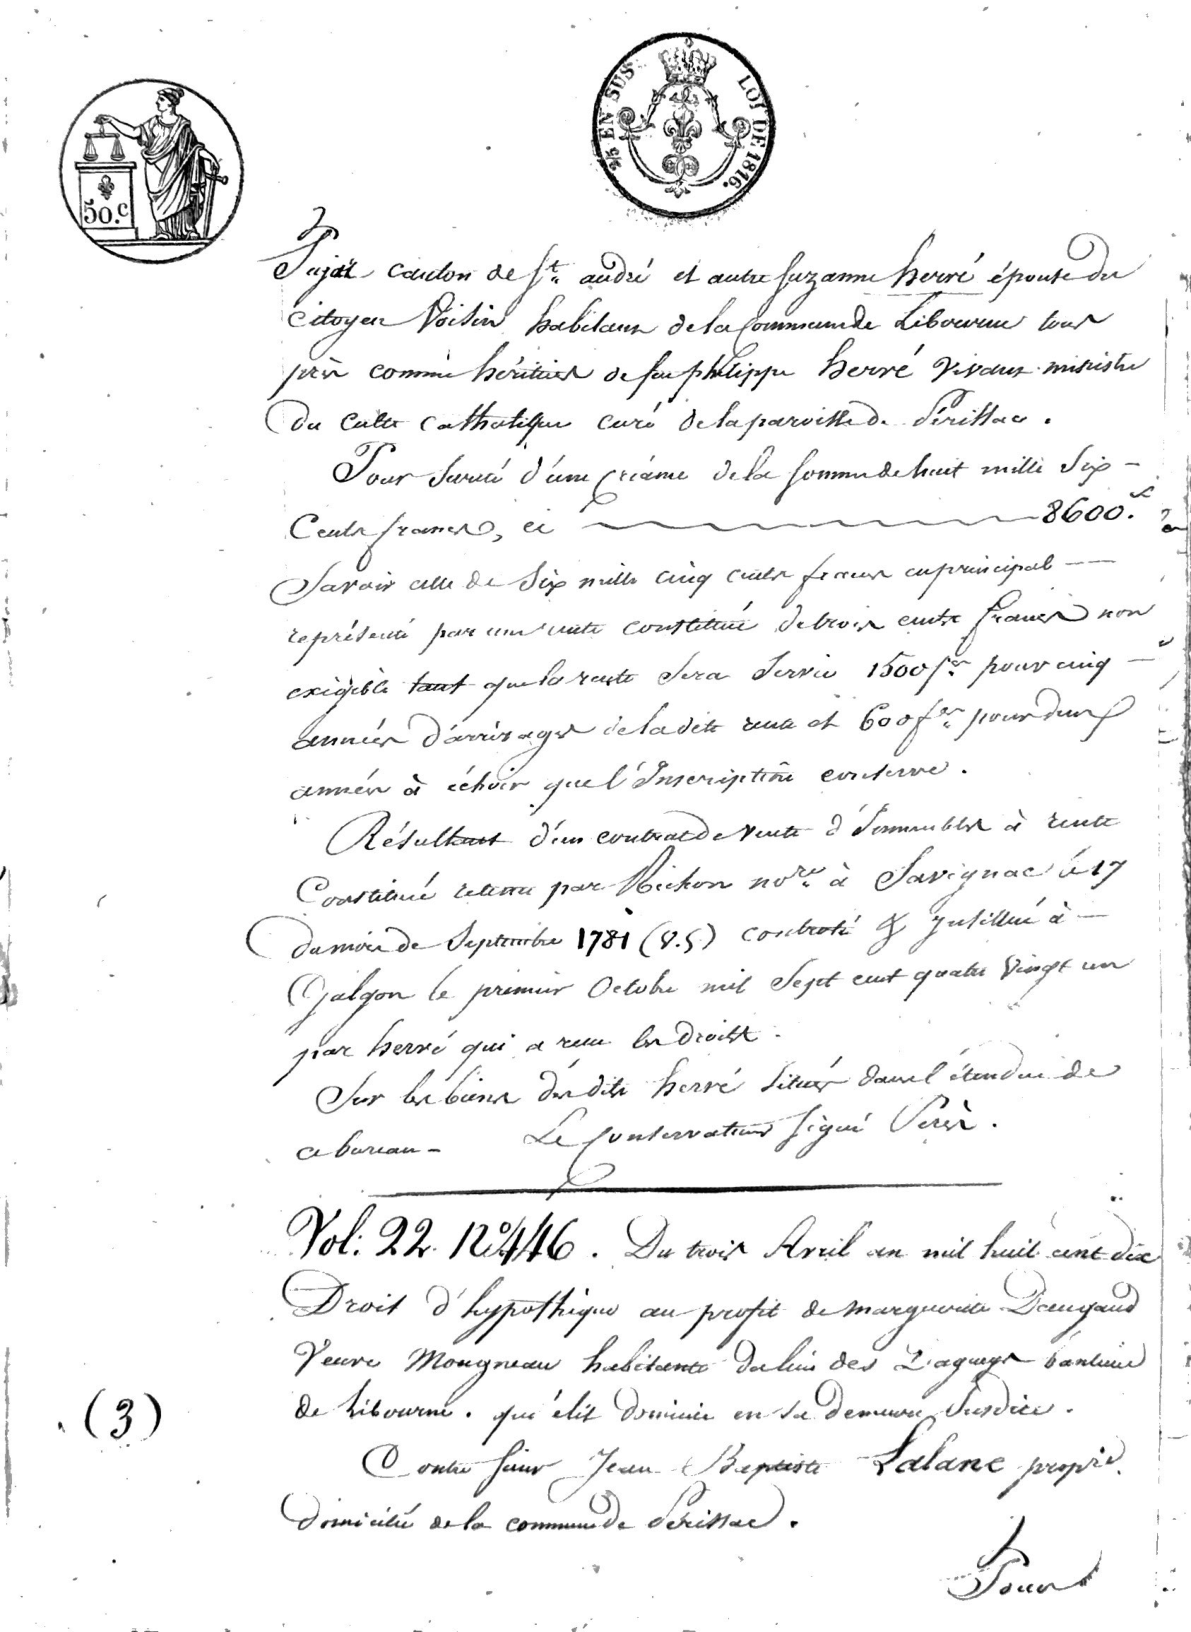 50.c
2/5 EN SUS LOI DE 1816.
Pujat canton de St. andré et autre suzanne herré épouse du
Citoyen Voisin habitans de la Commune de Libourne tous
pris comme héritiers de feu philippe herré vivant ministre
du culte catholique curé de la paroisse de Périssac.
Pour sureté d'une créance de la somme de huit mille Six -
Cents francs, ci 8600.f
Savoir celle de Six mille cinq cents francs en principal -
représenté par une rente constituée de trois cents francs non
exigible tant que la rente sera Servie 1500fr. pour cinq -
années d'arrérages de la dite rente et 600fr. pour deux
années à échoir que l'Inscription conserve.
Résultant d'un contrat de vente d'Immeubles à rente
Constituée retenu par Richon nore. à Savignac le 17
du mois de Septembre 1781 (V.S) controlé & Insinué à -
Galgon le premier Octobre mil Sept cent quatre Vingt un
par herré qui a reçu les droits.
Sur les biens des dits herré situés dans l'étendue de
ce bureau - Le Conservateur signé Perès.
Vol: 22. No. 446. Du trois Avril an mil huit cent dix
Droit d'hypothèque au profit de marguerite Daugaud
Veuve Mougneau habitante du lieu des banlieue
de Libourne. qui élit domicile en sa demeure Susdite.
(3)
Contre sieur Jean Baptiste Lalane propre.
domicilié de la commune de Périssac.
Pour